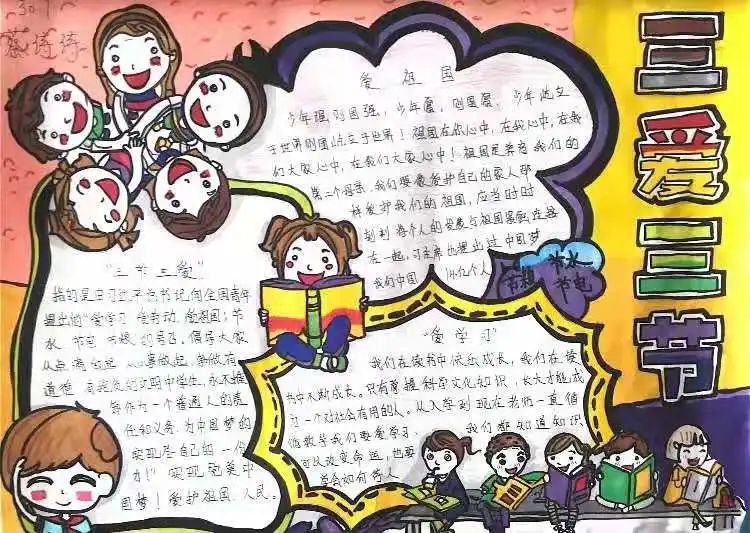 301
三爱三节
爱祖国
少年强则国强，少年富，则国富，少年屹立
于世界则国屹立于世界！祖国在你心中，在我心中，在我
们大家心中，在我们大家心中！祖国是养育我们的
第二个母亲，我们要像爱护自己的家人那
样爱护我们的祖国，应当时时
刻刻 每个人的 与祖国紧紧连接
在一起，习主席也提出过 中国梦
我们中国 14亿个人
节粮 节水
节电
"三节三爱"
指的是由习近平总书记向全国青年
提出的"爱学习 爱劳动 爱祖国；节
水 节电 节粮 的号召，倡导大家
从点滴 做起 做有
道德 有 的文明中学生，永不
一个普通人的责
任和义务 为中国梦的
实现尽自己的一份
力！"实现完美中
国梦！爱护祖国 人民。
"爱学习"
我们在读书中快乐成长，我们在读
书中不断成长。只有掌握科学文化知识，长大才能成
为一个对社会有用的人。从入学到现在老师一直循
循教导我们要爱学习， 我们都知道知识
可以改变命运，也要
学会如何待人